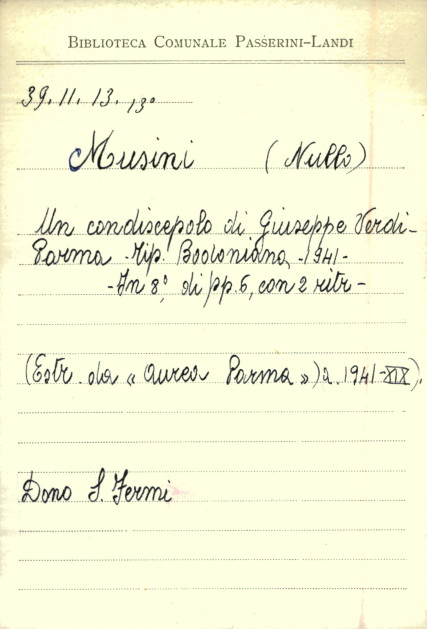 BIBLIOTECA COMUNALE PASSERINI-LANDI
39. 11. 13. 13º
Musini (Nullo)
Un condiscepolo di Giuseppe Verdi-
Parma - Tip. Bodoniana - 1941 -
- In 8º, di pp. 6, con 2 ritr -
(Estr. da « Aurea Parma ») a. 1941-XIX).
Dono S. Fermi